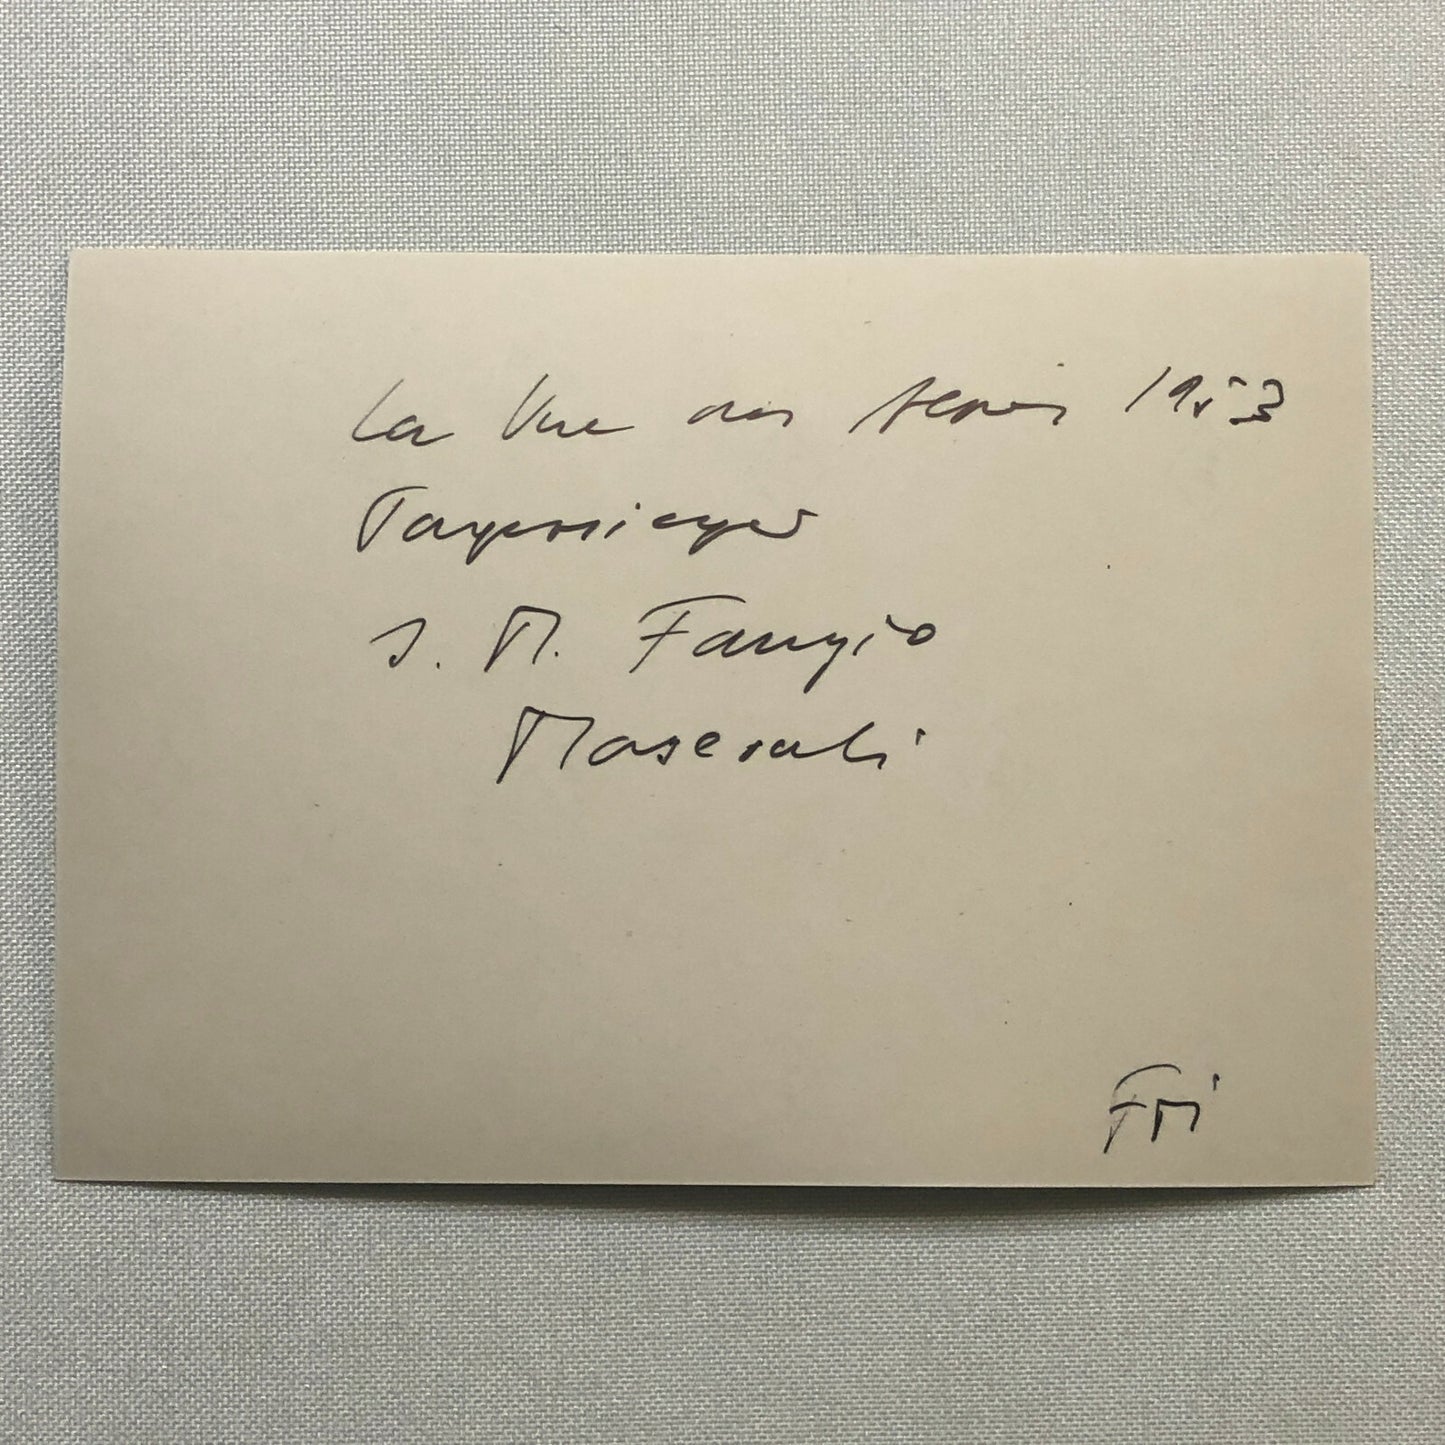 La Vue des Alpes 1953
Tagessieger
J. M. Fangio
Maserati